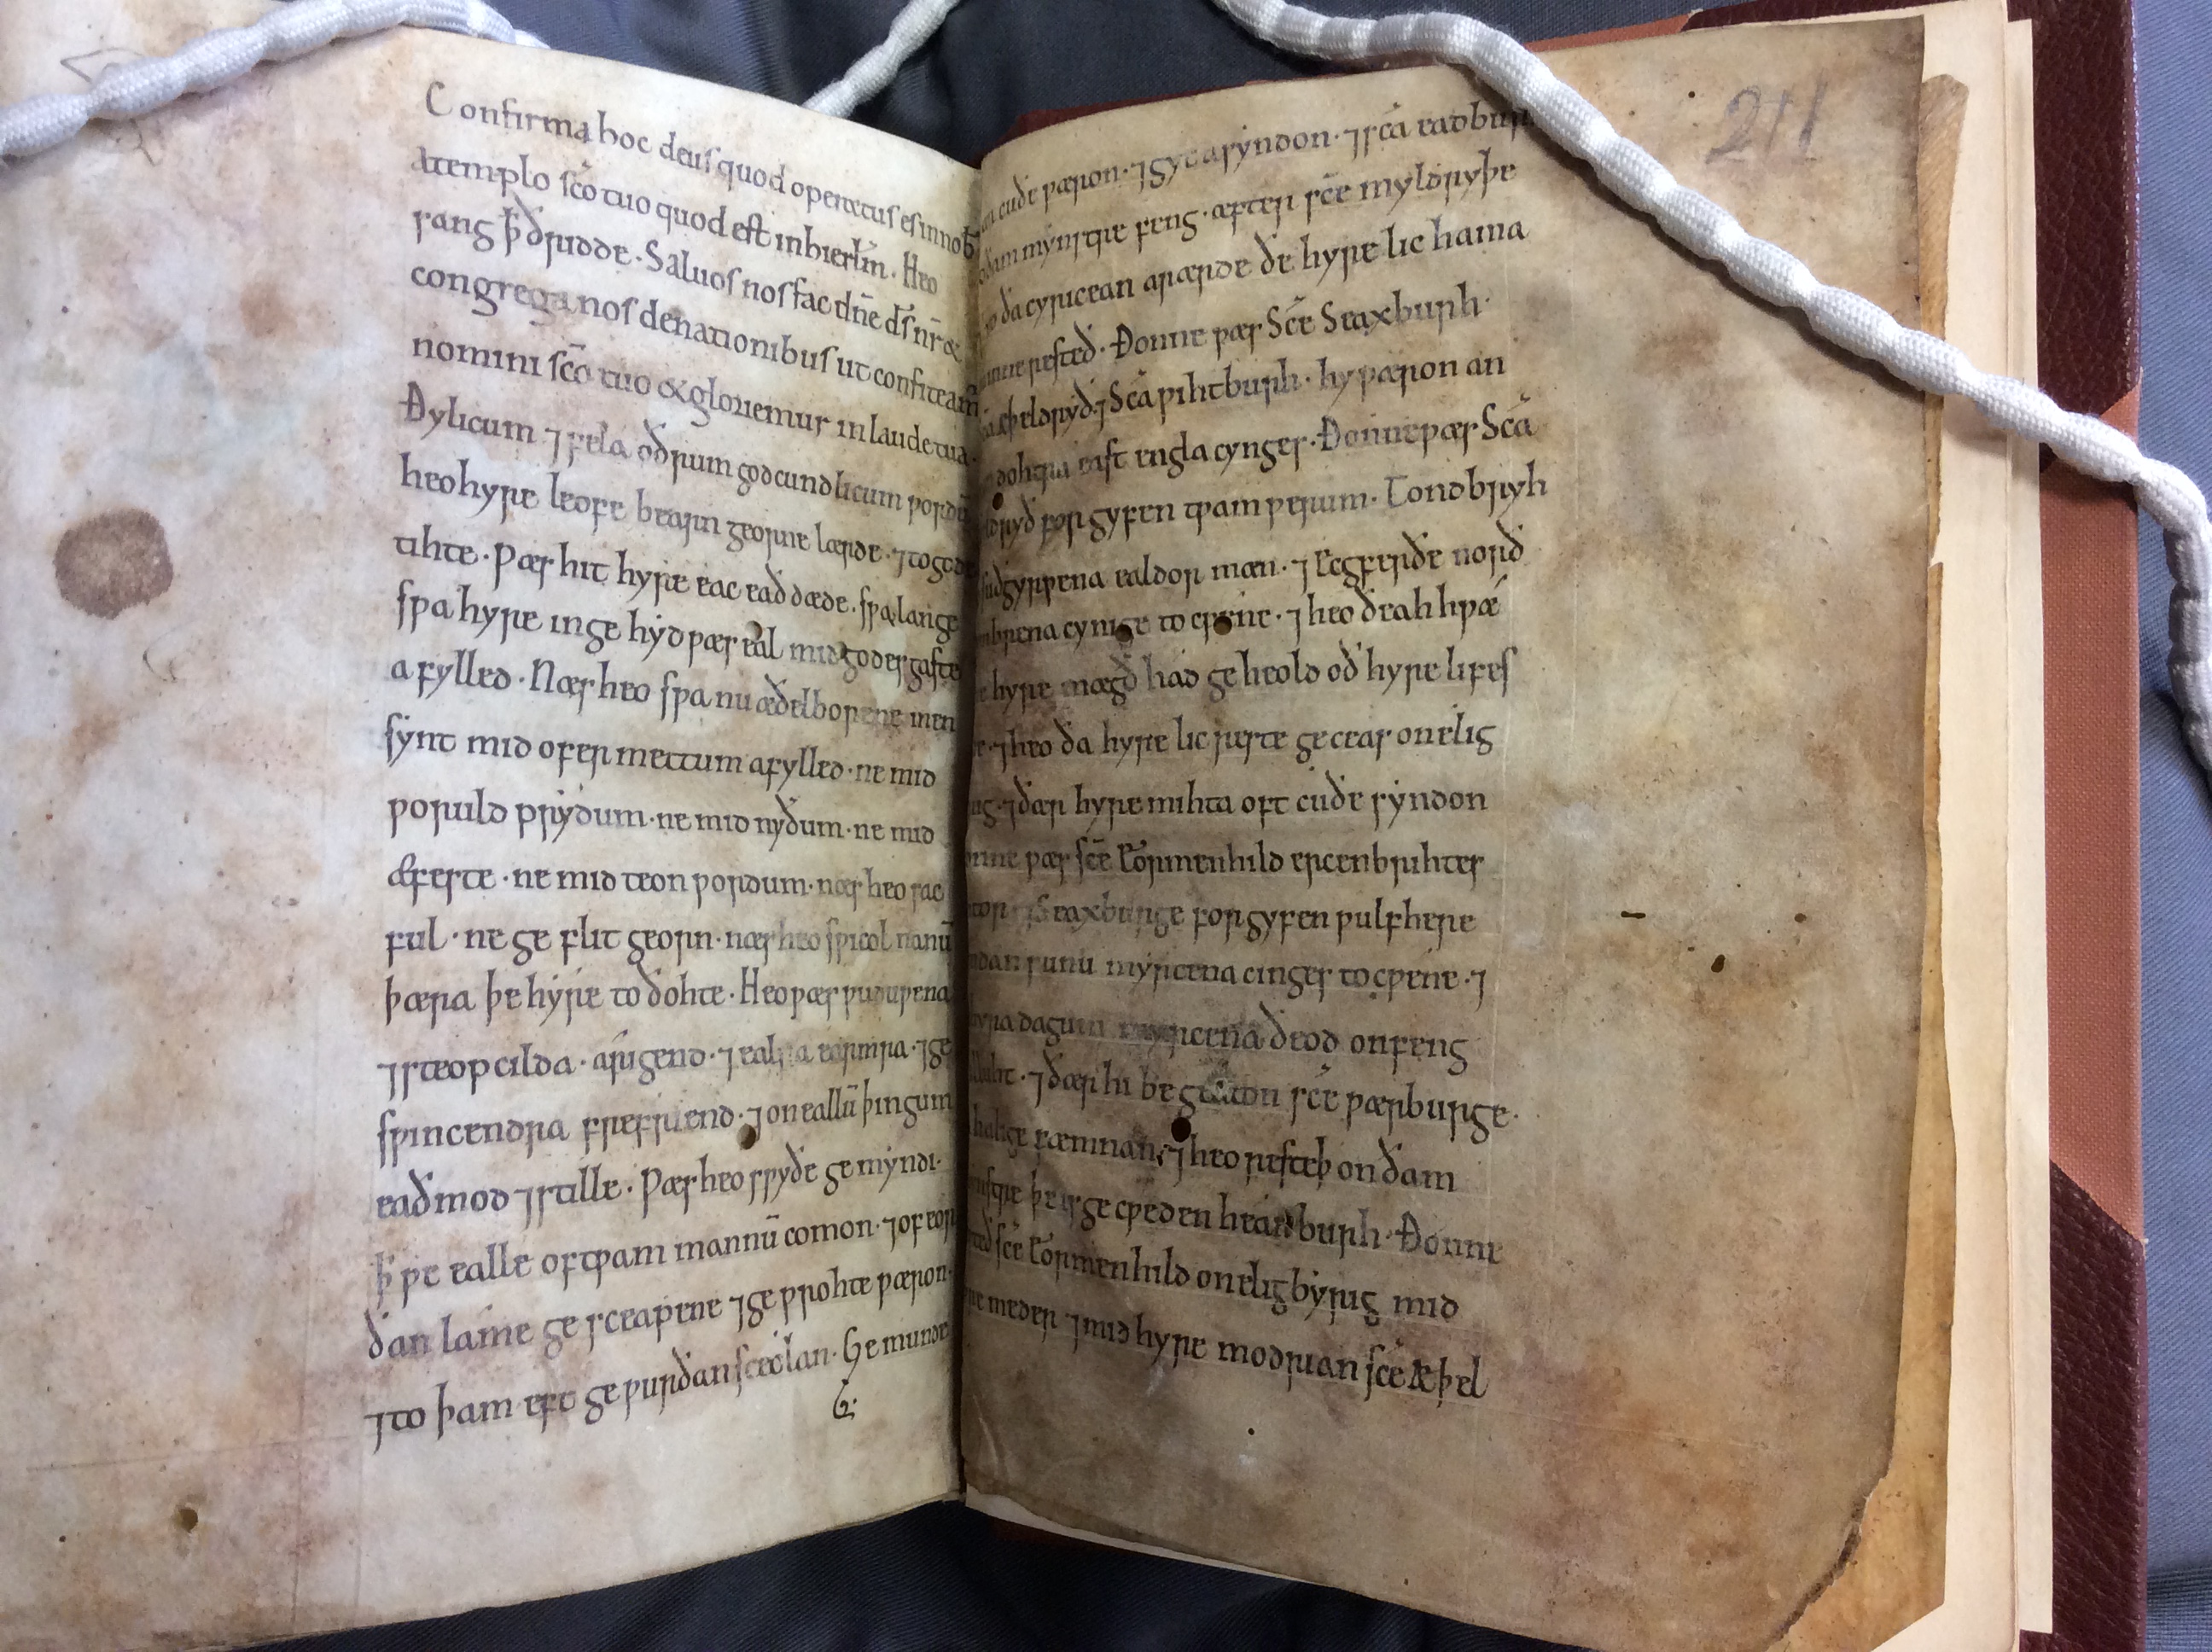 Confirma hoc deus quod operatus es in nob̄
atemplo sc̄o tuo quod est in hierlm̄. Heo
sang þ ðridde. Saluos nos fac dn̄e ds̄ nr̄ &
congrega nos denationibus ut confiteam̄
nomini sc̄o tuo & gloriemur in laude tua.
Ðylicum ⁊ fela oðrium godcundlicum
heo hyre leofe bearn georne lærde. ⁊
tihte. ƿæs hit hyre eac eað dæde. sƿa lange
sƿa hyre inge hyd ƿæs eal mid godes gaste
a fylled. Næs heo sƿa nu æðelborene men
synt mid ofer mettum afylled. ne mid
ƿoruld prydum. ne mid nyðum. ne mid
æfeste. ne mid teon ƿordum. næs heo sac
ful. ne ge flit georn. næs heo sƿicol nanū
þæra þe hyre to ðohte. Heo ƿæs ƿuduƿena
⁊ steop cilda. arigend. ⁊ ealra earmra. ⁊ ge
sƿincendra frefriend. ⁊ on eallū þingum
eaðmod ⁊ stille. ƿæs heo sƿyðe ge myndi.
þ ƿe ealle of tƿam mannū comon. ⁊ of eor
ðan lame ge sceapene ⁊ ge ƿrohte ƿæron.
⁊ to þam eft ge ƿurðan sceolan. Ge munde
211
cuðe ƿæron. ⁊ gyt a syndon. ⁊ sc̄a eadburh
mynstre feng. æfter sc̄e myldryþe
ða cyricean arærde ðe hyre lic hama
inne resteð. Ðonne ƿæs Sc̄e Seaxburh.
æþeldryð. ⁊ Sc̄a ƿihtburh. hy ƿæron an
dohtra east engla cynges. Ðonne ƿæs Sc̄a
for gyfen tƿam ƿerum. Tondbryh
suðgyrƿena ealdor mæn. ⁊ Ecgferðe norð
cynige to cƿene. ⁊ heo ðeah hƿæ
hyre mægð had ge heold oð hyre lifes
⁊ heo ða hyre lic reste ge ceas on elig
⁊ ðær hyre mihta oft cuðe syndon
ƿæs sc̄e Eormenhild ercenbrihtes
⁊ Seaxburge forgyfen ƿulfhere
sunu myrcena cinges to cƿene. ⁊
dagum myrcena ðeod onfeng
⁊ ðær hi be geaton sc̄e ƿærburge.
halige fæmnan. ⁊ heo resteþ on ðam
þe is ge cƿeden heanburh. Ðonne
sc̄e Eormenhild on elig byrig mid
meder ⁊ mid hyre modrian sc̄e Æþel